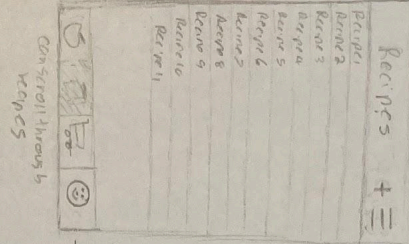 Recipes + ☰
Recipe 1
Recipe 2
Recipe 3
Recipe 4
Recipe 5
Recipe 6
Recipe 7
Recipe 8
Recipe 9
Recipe 10
Recipe 11
can scroll through
recipes